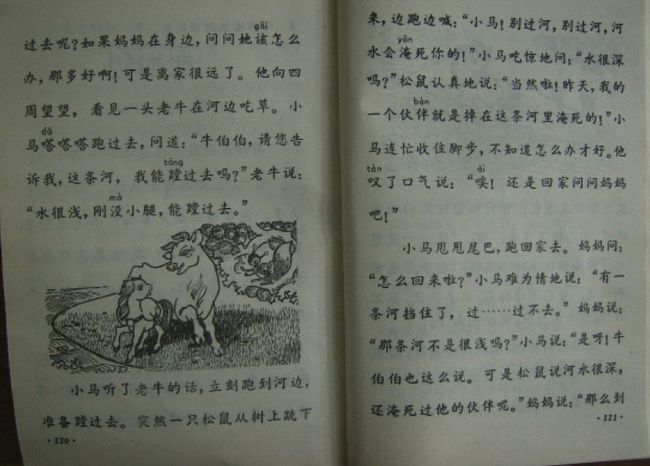 gāi
过去呢？如果妈妈在身边，问问她该怎么
办，那多好啊！可是离家很远了。他向四
周望望，看见一头老牛在河边吃草。小
dā
马嗒嗒嗒跑过去，问道：“牛伯伯，请您告
tāng
诉我，这条河，我能蹚过去吗？”老牛说：
mò
“水很浅，刚没小腿，能蹚过去。”
小马听了老牛的话，立刻跑到河边，
准备蹚过去。突然一只松鼠从树上跳下
·120·
来，边跑边喊：“小马！别过河，别过河，河
yān
水会淹死你的！”小马吃惊地问：“水很深
吗？”松鼠认真地说：“当然啦！昨天，我的
bàn
一个伙伴就是掉在这条河里淹死的！”小
马连忙收住脚步，不知道怎么办才好。他
tàn ài
叹了口气说：“唉！还是回家问问妈妈
吧！”
小马甩甩尾巴，跑回家去。妈妈问：
“怎么回来啦？”小马难为情地说：“有一
条河挡住了，过……过不去。”妈妈说：
“那条河不是很浅吗？”小马说：“是呀！牛
伯伯也这么说。可是松鼠说河水很深，
还淹死过他的伙伴呢。”妈妈说：“那么到
·121·